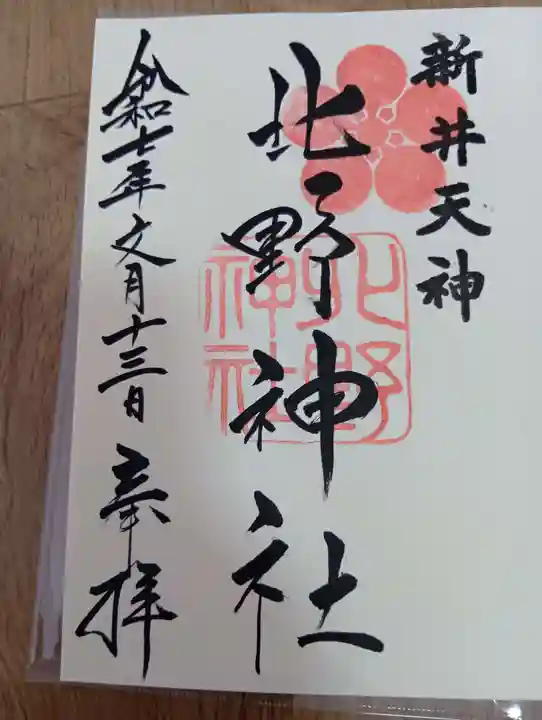 新井天神
北野神社
北野
神社
令和七年文月十三日 奉拝